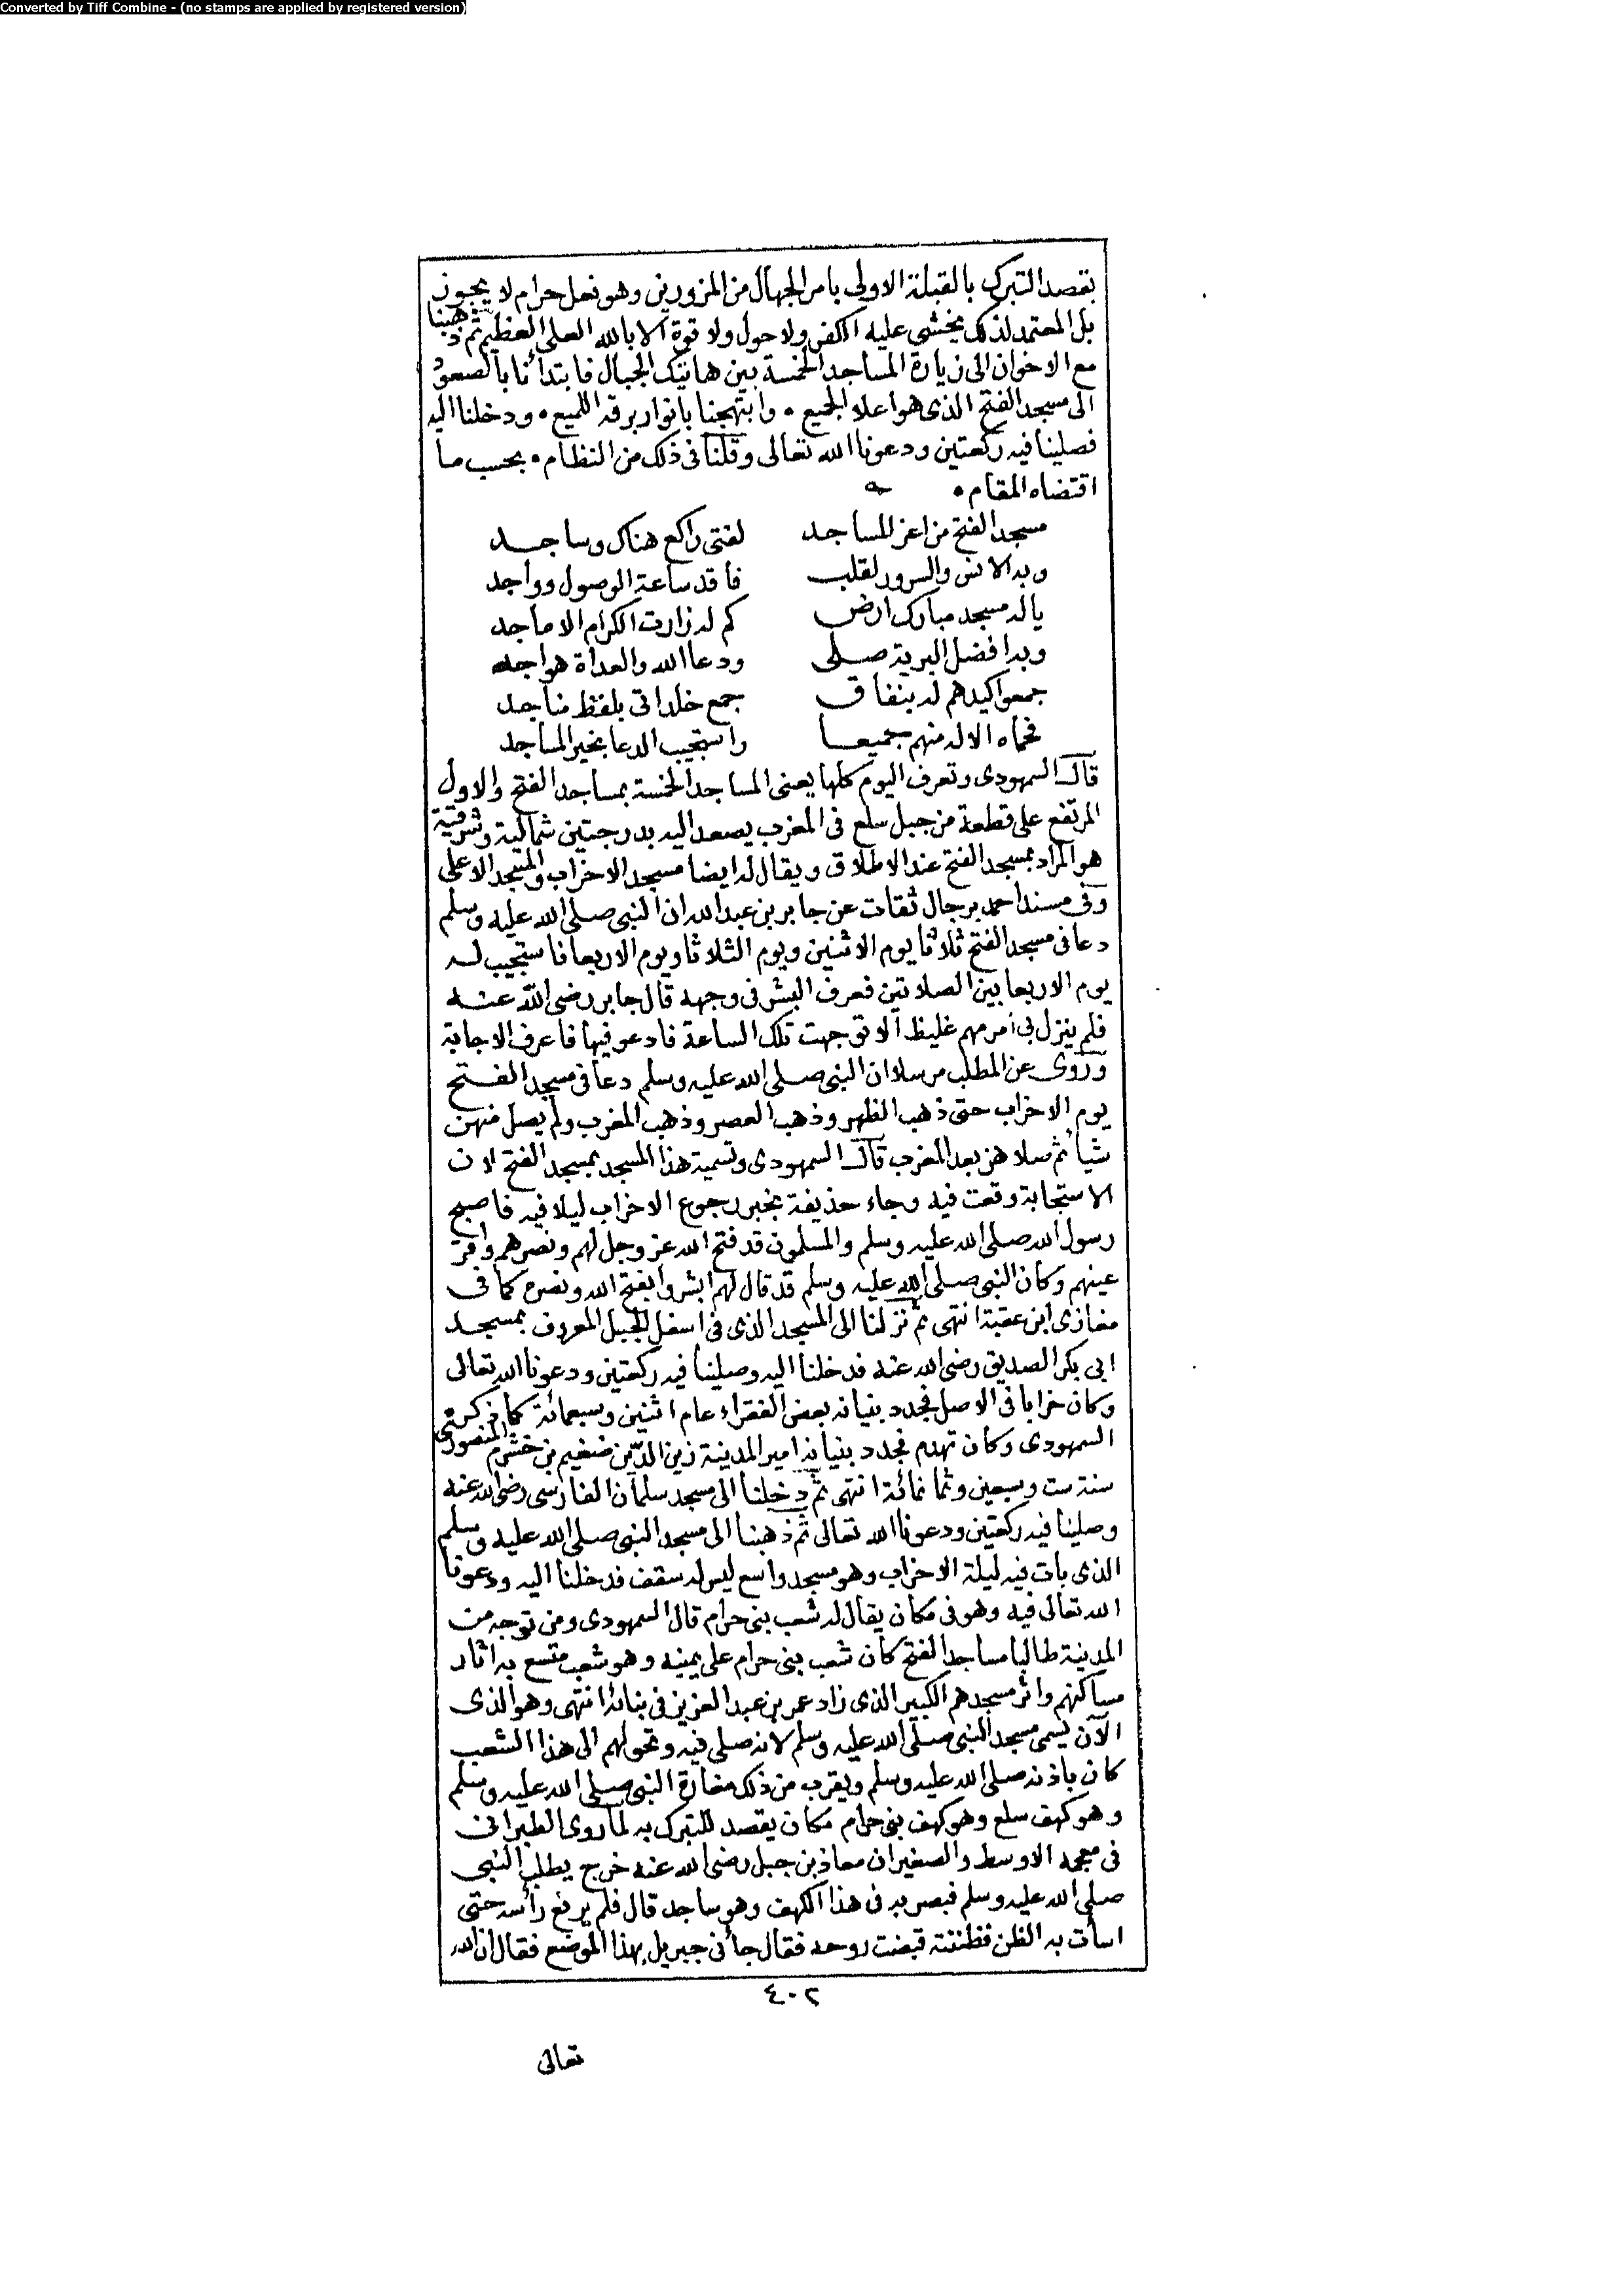 Converted by Tiff Combine - (no stamps are applied by registered version)
بقصد التبرك بالقبلة الاولى بامر الجهال من المزورين وهو فعل حرام لا يجوز
بل المعتمد لذلك يخشى عليه الكفر ولا حول ولا قوة الا بالله العلى العظيم ثم ذهبنا
مع الاخوان الى زيارة المساجد الخمسة بين هاتيك الجبال فابتدأنا بالصعود
الى مسجد الفتح الذى هو اعلا الجميع • وابتهجنا بانوار برقه اللميع • ودخلنا اليه
فصلينا فيه ركعتين ودعونا الله تعالى وقلنا فى ذلك من النظام • بحسب ما
اقتضاه المقام •
مسجد الفتح من اعز المساجد لفتى راكع هناك وساجد
وبه الانس والسرور لقلب فاقد ساعة الوصول وواجد
ياله مسجد مبارك ارض كم له زارت الكرام الاماجد
وبه افضل البرية صلى ودعا الله والعداة هواجد
جمعوا كيدهم له بنفاق جمع خلد اتى بلفظ مناجد
فحماه الاله منهم جميعا واستجيب الدعا بخير المساجد
قال السمهودى وتعرف اليوم كلها يعنى المساجد الخمسة بمساجد الفتح والاول
المرتفع على قطعة من جبل سلع فى المغرب يصعد اليه بدرجتين شمالية وشرقية
هو المراد بمسجد الفتح عند الاطلاق ويقال له ايضا مسجد الاحزاب والمسجد الاعلى
وفى مسند احمد برجال ثقات عن جابر بن عبد الله ان النبى صلى الله عليه وسلم
دعا فى مسجد الفتح ثلاثا يوم الاثنين ويوم الثلاثا ويوم الاربعا فاستجيب له
يوم الاربعا بين الصلاتين فعرف البشر فى وجهه قال جابر رضى الله عنه
فلم ينزل بى امر مهم غليظ الا توجهت تلك الساعة فادعو فيها فاعرف الاجابة
وروى عن المطلب مرسلا ان النبى صلى الله عليه وسلم دعا فى مسجد الفتح
يوم الاحزاب حتى ذهب الظهر وذهب العصر وذهب المغرب ولم يصل منهن
شيأ ثم صلاهن بعد المغرب قال السمهودى وتسمية هذا المسجد بمسجد الفتح لان
الاستجابة وقعت فيه وجاء حذيفة بخبر رجوع الاحزاب ليلا فيه فاصبح
رسول الله صلى الله عليه وسلم والمسلمون قد فتح الله عز وجل لهم ونصرهم واقر
عينهم وكان النبى صلى الله عليه وسلم قد قال لهم ابشروا بفتح الله ونصره كما فى
مغازى ابن عقبة انتهى ثم نزلنا الى المسجد الذى فى اسفل الجبل المعروف بمسجد
ابى بكر الصديق رضى الله عنه فدخلنا اليه وصلينا فيه ركعتين ودعونا الله تعالى
وكان خرابا فى الاصل فجدد بنيانه بعض الفقراء عام اثنين وتسعمائة كما ذكره
السمهودى وكان تهدم فجدد بنيانه امير المدينة زين الدين ضغيم بن خشرم المنصورى
سنة ست وسبعين وثمانمائة انتهى ثم دخلنا الى مسجد سلمان الفارسى رضى الله عنه
وصلينا فيه ركعتين ودعونا الله تعالى ثم ذهبنا الى مسجد النبى صلى الله عليه وسلم
الذى بات فيه ليلة الاحزاب وهو مسجد واسع ليس له سقف فدخلنا اليه ودعونا
الله تعالى فيه وهو فى مكان يقال له شعب بنى حرام قال السمهودى ومن توجه من
المدينة طالبا مساجد الفتح كان شعب بنى حرام على يمينه وهو شعب متسع به اثار
مساكنهم واثر مسجدهم الكبير الذى زاد عمر بن عبد العزيز فى بنائه انتهى وهو الذى
الآن يسمى مسجد النبى صلى الله عليه وسلم لانه صلى فيه وتحولهم الى هذا الشعب
كان باذنه صلى الله عليه وسلم وبقرب من ذلك مغارة النبى صلى الله عليه وسلم
وهو كهف سلع وهو كهف بنى حرام مكان يقصد للتبرك به لما روى الطبرانى
فى معجمه الاوسط والصغير ان معاذ بن جبل رضى الله عنه خرج يطلب النبى
صلى الله عليه وسلم فبصر به فى هذا الكهف وهو ساجد قال فلم يرفع رأسه حتى
اسأت به الظن فظننته قبضت روحه فقال جأنى جبريل بهذا الموضع فقال ان الله
٤٠٢
تعالى